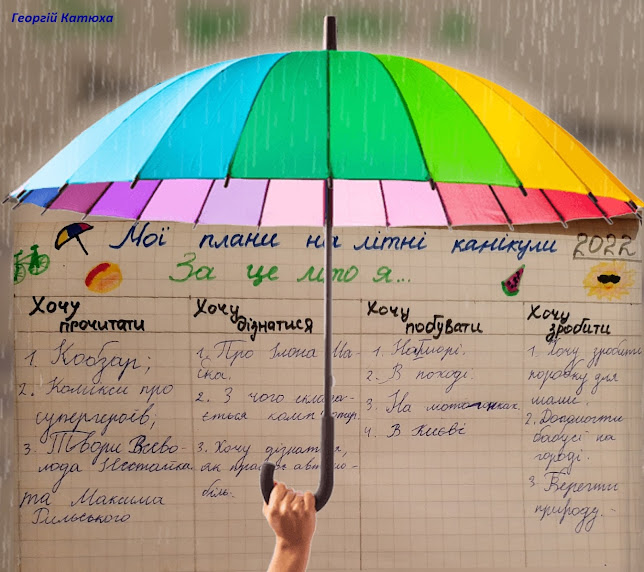 Георгій Катюха
Мої плани на літні канікули 2022
За це літо я...
Хочу
прочитати
1. Кобзар;
2. Комікси про
супергероїв;
3. Твори Всево-
лода Нестайка
та Максима
Рильського
Хочу
дізнатися
1. Про Ілона Ма-
ска.
2. З чого склада-
ється комп'ютер.
3. Хочу дізнатися,
як працює автомо-
біль.
Хочу
побувати
1. На морі.
2. В поході.
3. На мотогонках.
4. В Києві
Хочу
зробити
1. Хочу зробити
для
мами
2. Допомогти
бабусі на
городі.
3 Берегти
природу.